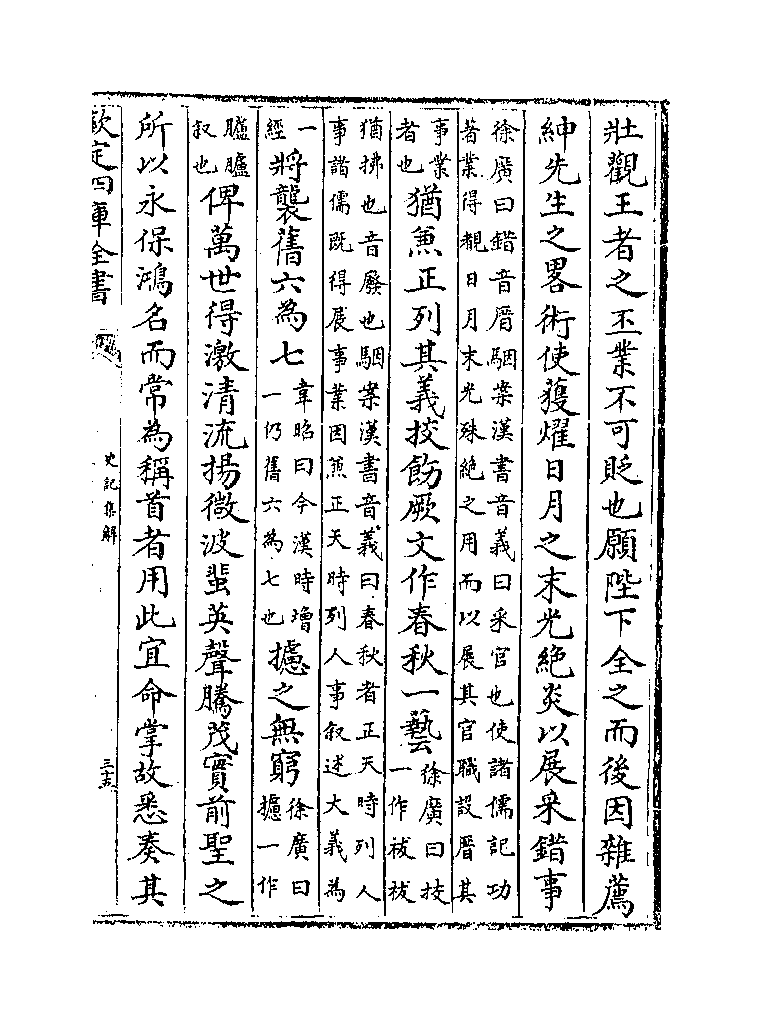 壯觀王者之丕業不可貶也願陛下全之而後因雜薦
紳先生之畧術使獲燿日月之末光絶炎以展采錯事
徐廣曰錯音厝駰案漢書音義曰采官也使諸儒記功
著業得覩日月末光殊絶之用而以展其官職設厝其
事業者也猶兼正列其義挍飭厥文作春秋一藝徐廣曰挍一作祓祓
猶拂也音廢也駰案漢書音義曰春秋者正天時列人
事諸儒既得展事業因兼正天時列人事叙述大義為
一經將襲舊六為七韋昭曰今漢時增一仍舊六為七也攄之無窮徐廣曰攄一作
臚臚叙也俾萬世得激清流揚微波蜚英聲騰茂實前聖之
所以永保鴻名而常為稱首者用此宜命掌故悉奏其
欽定四庫全書
史記集解
三十五